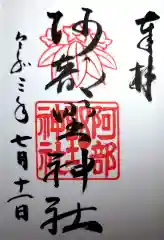 奉拝
阿部野神社
阿部野神社
令和三年七月十一日